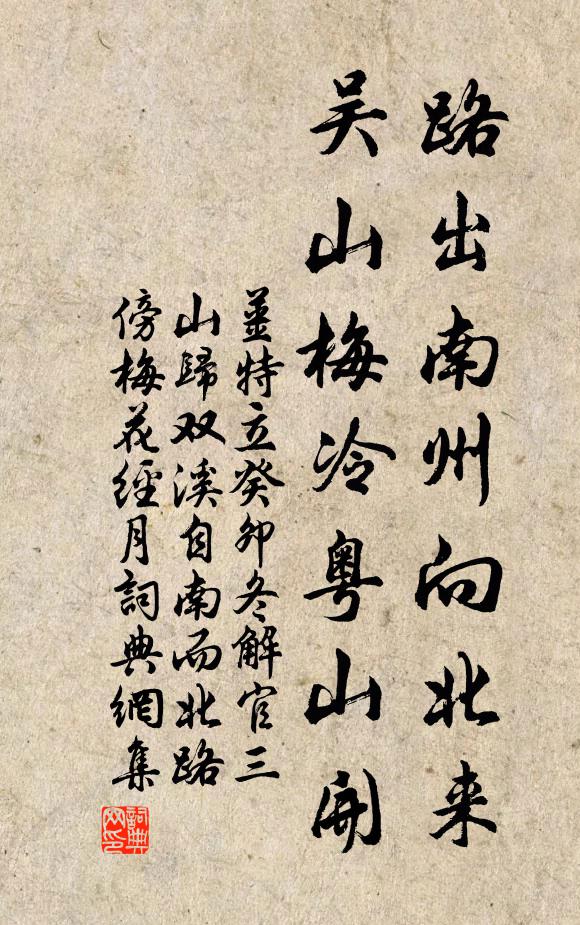 路出南州向北来
吴山梅冷粤山開
薑特立癸卯冬解官三
山歸双溪自南而北路
傍梅花經月詞典網集
詞典网印